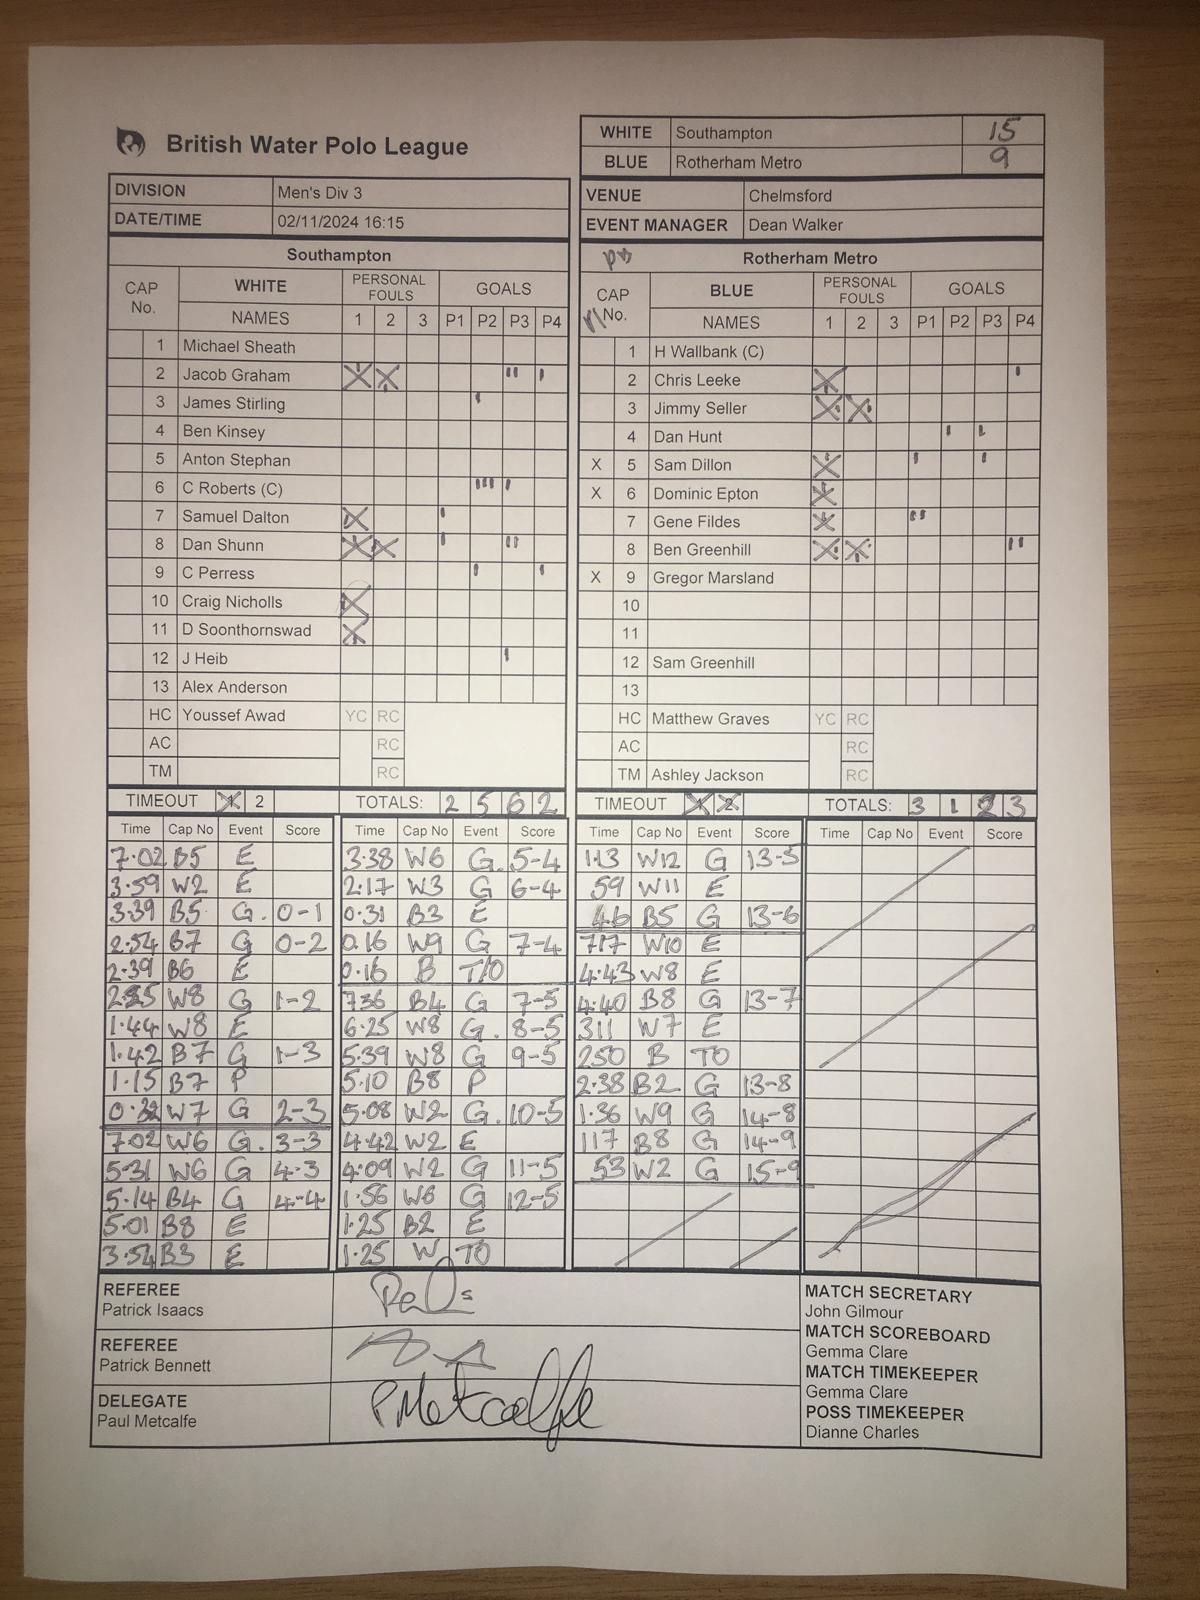 British Water Polo League
WHITE Southampton 15
BLUE Rotherham Metro 9
DIVISION Men's Div 3
DATE/TIME 02/11/2024 16:15
VENUE Chelmsford
EVENT MANAGER Dean Walker
Southampton
CAP No. WHITE PERSONAL FOULS GOALS
NAMES 1 2 3 P1 P2 P3 P4
1 Michael Sheath
2 Jacob Graham X X II I
3 James Stirling I
4 Ben Kinsey
5 Anton Stephan
6 C Roberts (C) III I
7 Samuel Dalton X I
8 Dan Shunn X X I II
9 C Perress I I
10 Craig Nicholls X
11 D Soonthornswad X
12 J Heib I
13 Alex Anderson
HC Youssef Awad YC RC
AC RC
TM RC
TIMEOUT 1 2 TOTALS: 2 5 6 2
Rotherham Metro
CAP No. BLUE PERSONAL FOULS GOALS
NAMES 1 2 3 P1 P2 P3 P4
1 H Wallbank (C)
2 Chris Leeke X I
3 Jimmy Seller X X
4 Dan Hunt I I
X 5 Sam Dillon X I I
X 6 Dominic Epton X
7 Gene Fildes X II
8 Ben Greenhill X X II
X 9 Gregor Marsland
10
11
12 Sam Greenhill
13
HC Matthew Graves YC RC
AC RC
TM Ashley Jackson RC
TIMEOUT 1 2 TOTALS: 3 1 2 3
Time Cap No Event Score
7.02 B5 E
3.59 W2 E
3.39 B5 G. 0-1
2.54 B7 G 0-2
2.39 B6 E
W8 G 1-2
1.44 W8 E
1.42 B7 G 1-3
1.15 B7 P
W7 G 2-3
7.02 W6 G. 3-3
5.31 W6 G 4-3
5.14 B4 G 4-4
5.01 B8 E
3.54 B3 E
Time Cap No Event Score
3.38 W6 G. 5-4
2.17 W3 G 6-4
0.31 B3 E
0.16 W9 G 7-4
0.16 B T/O
736 B4 G 7-5
6.25 W8 G. 8-5
5.39 W8 G 9-5
5.10 B8 P
5.08 W2 G. 10-5
4.42 W2 E
4.09 W2 G 11-5
1.56 W6 G 12-5
1.25 B2 E
1.25 W TO
Time Cap No Event Score
1.13 W12 G 13-5
59 W11 E
46 B5 G 13-6
717 W10 E
4.43 W8 E
4.40 B8 G 13-7
311 W7 E
250 B TO
2.38 B2 G 13-8
1.36 W9 G 14-8
117 B8 G 14-9
53 W2 G 15-9
Time Cap No Event Score
REFEREE
Patrick Isaacs
REFEREE
Patrick Bennett
DELEGATE
Paul Metcalfe
PMetcalfe
MATCH SECRETARY
John Gilmour
MATCH SCOREBOARD
Gemma Clare
MATCH TIMEKEEPER
Gemma Clare
POSS TIMEKEEPER
Dianne Charles